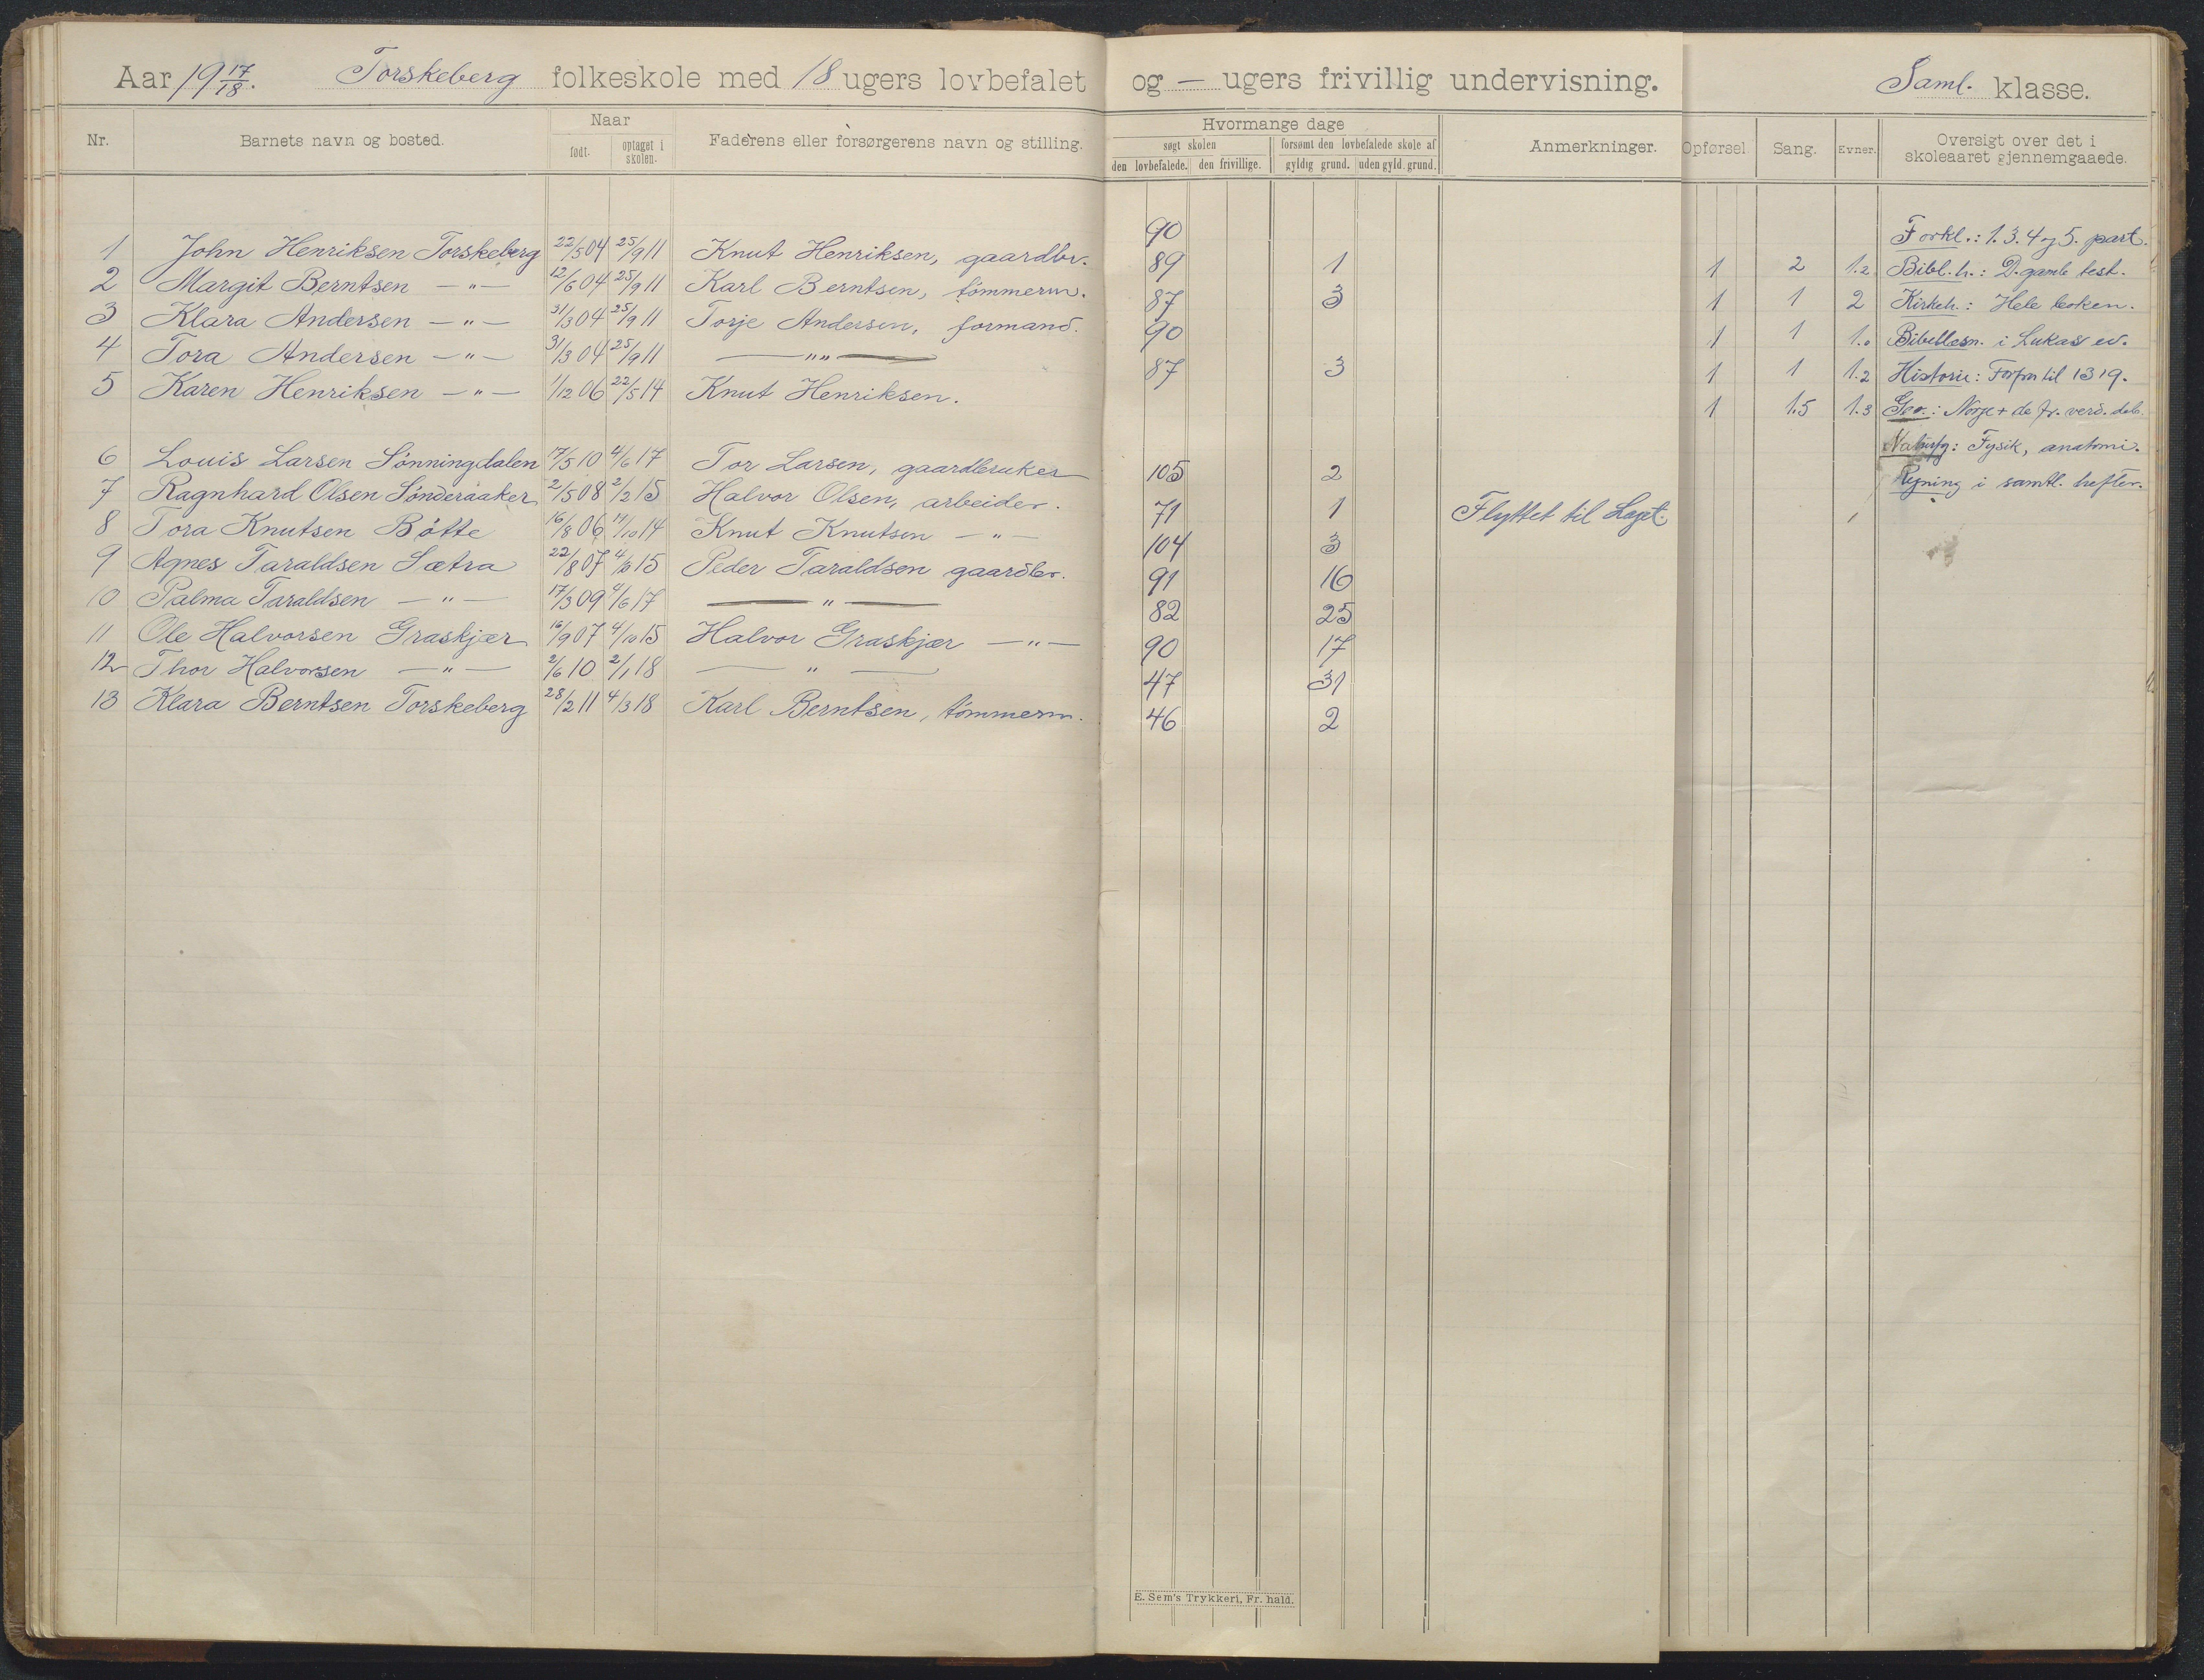 Aar 19 17/18. Torskeberg folkeskole med 18 ugers lovbefalet og — ugers frivillig undervisning. Saml. klasse.
Nr. Barnets navn og bosted. Naar født. optaget i skolen. Faderens eller forsørgerens navn og stilling. Hvormange dage søgt skolen den lovbefalede. den frivillige. forsømt den lovbefalede skole af gyldig grund. uden gyld. grund. Anmerkninger. Opførsel Sang. Evner. Oversigt over det i skoleaaret gjennemgaaede.
1 John Henriksen Torskeberg 22/5 04 25/9 11 Knut Henriksen, gaardbr. 90
2 Margit Berntsen — " — 12/6 04 25/9 11 Karl Berntsen, tømmerm. 89 1
3 Klara Andersen — " — 31/3 04 25/9 11 Torje Andersen, formand. 87 3
4 Tora Andersen — " — 31/3 04 25/9 11 — " " — 90
5 Karen Henriksen — " — 1/12 06 22/5 14 Knut Henriksen. 87 3
6 Louis Larsen Sønningdalen 17/5 10 4/6 17 Tor Larsen, gaardbruker 105 2
7 Ragnhard Olsen Sønderaaker 2/5 08 2/2 15 Halvor Olsen, arbeider. 71 1 Flyttet til Laget.
8 Tora Knutsen Bøtte 16/8 06 14 Knut Knutsen — " — 104 3
9 Agnes Taraldsen Sætra 22/8 07 4/10 15 Peder Taraldsen gaardbr. 91 16
10 Palma Taraldsen — " — 17/3 09 4/6 17 — " — 82 25
11 Ole Halvorsen Graskjær 16/9 07 4/10 15 Halvor Graskjær — " — 90 17
12 Thor Halvorsen — " — 2/6 10 2/1 18 — " — 47 31
13 Klara Berntsen Torskeberg 28/2 11 4/3 18 Karl Berntsen, tømmerm. 46 2
Forkl.: 1. 3. 4 og 5. part.
1 2 1.2 Bibl. h.: D. gamle test.
1 1 2 Kirkeh.: Hele boken.
1 1 1. Bibellesn. i Lukas ev.
1 1 1.2 Historie: til 1319.
1 1.5 1.3 Geo.: Norge + de fr. verd. dele.
Naturfg: Fysik, anatomi.
Regning i samtl. hefter.
E. Sem's Trykkeri, Fr. hald.